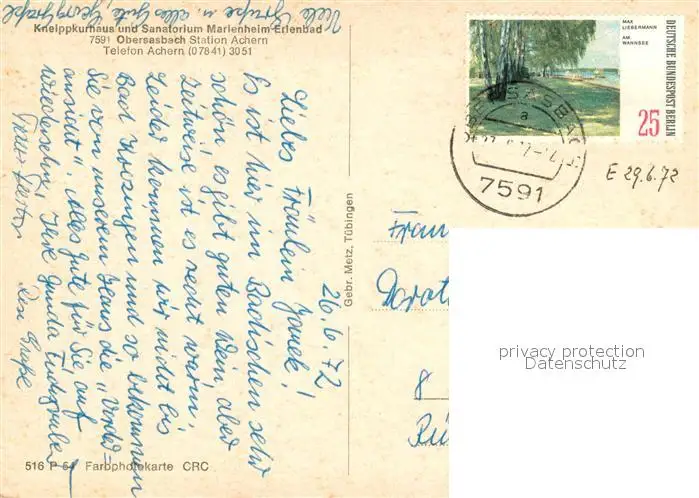 Viele Grüße u. alles Gute,
Kneippkurhaus und Sanatorium Marienheim-Erlenbad
7591 Obersasbach Station Achern
Telefon Achern (07841) 3051
26.6.72
Liebes Fräulein Janek!
Es ist hier im Badischen sehr
schön es gibt guten Wein aber
zeitweise ist es recht warm.
Leider kommen wir nicht bis
Bad Krozingen und so bekommen
Sie von unserem Haus die "Vorder=
ansicht". Alles Gute für Sie auf
wiedersehn! Ihre Gerda
Grüße
516 P 54 Farbphotokarte CRC
Gebr. Metz, Tübingen
MAX
LIEBERMANN
AM
WANNSEE
DEUTSCHE BUNDESPOST BERLIN
25
OBERSASBACH
a
7591
E 29.6.72
8
privacy protection
Datenschutz